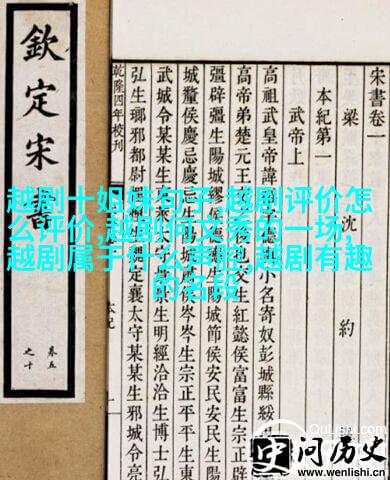 越剧十姐妹句子,越剧评价怎
么评价,越剧何文秀的一场,
越剧属于什么剧种,越剧有趣
的名段
欽定宋書
宋書卷一
梁 沈 約
本紀第一
武帝上
高祖武皇帝諱裕字德輿小名寄奴彭城縣綏
高帝弟楚元王交之後也交生紅懿侯富富生宗正辟
彊辟彊生陽城繆侯德德生陽城節侯安民安民生陽
城釐侯慶忌慶忌生陽城肅侯岑岑生宗正平平生東
武城令某某生東萊太守景景生明經洽洽生博士弘
弘生瑯邪都尉悝悝生魏定襄太守某某生邪城令亮
乾隆四年校刊
本紀
一
QuLishi.com
史问历史
www.wenlishi.cn